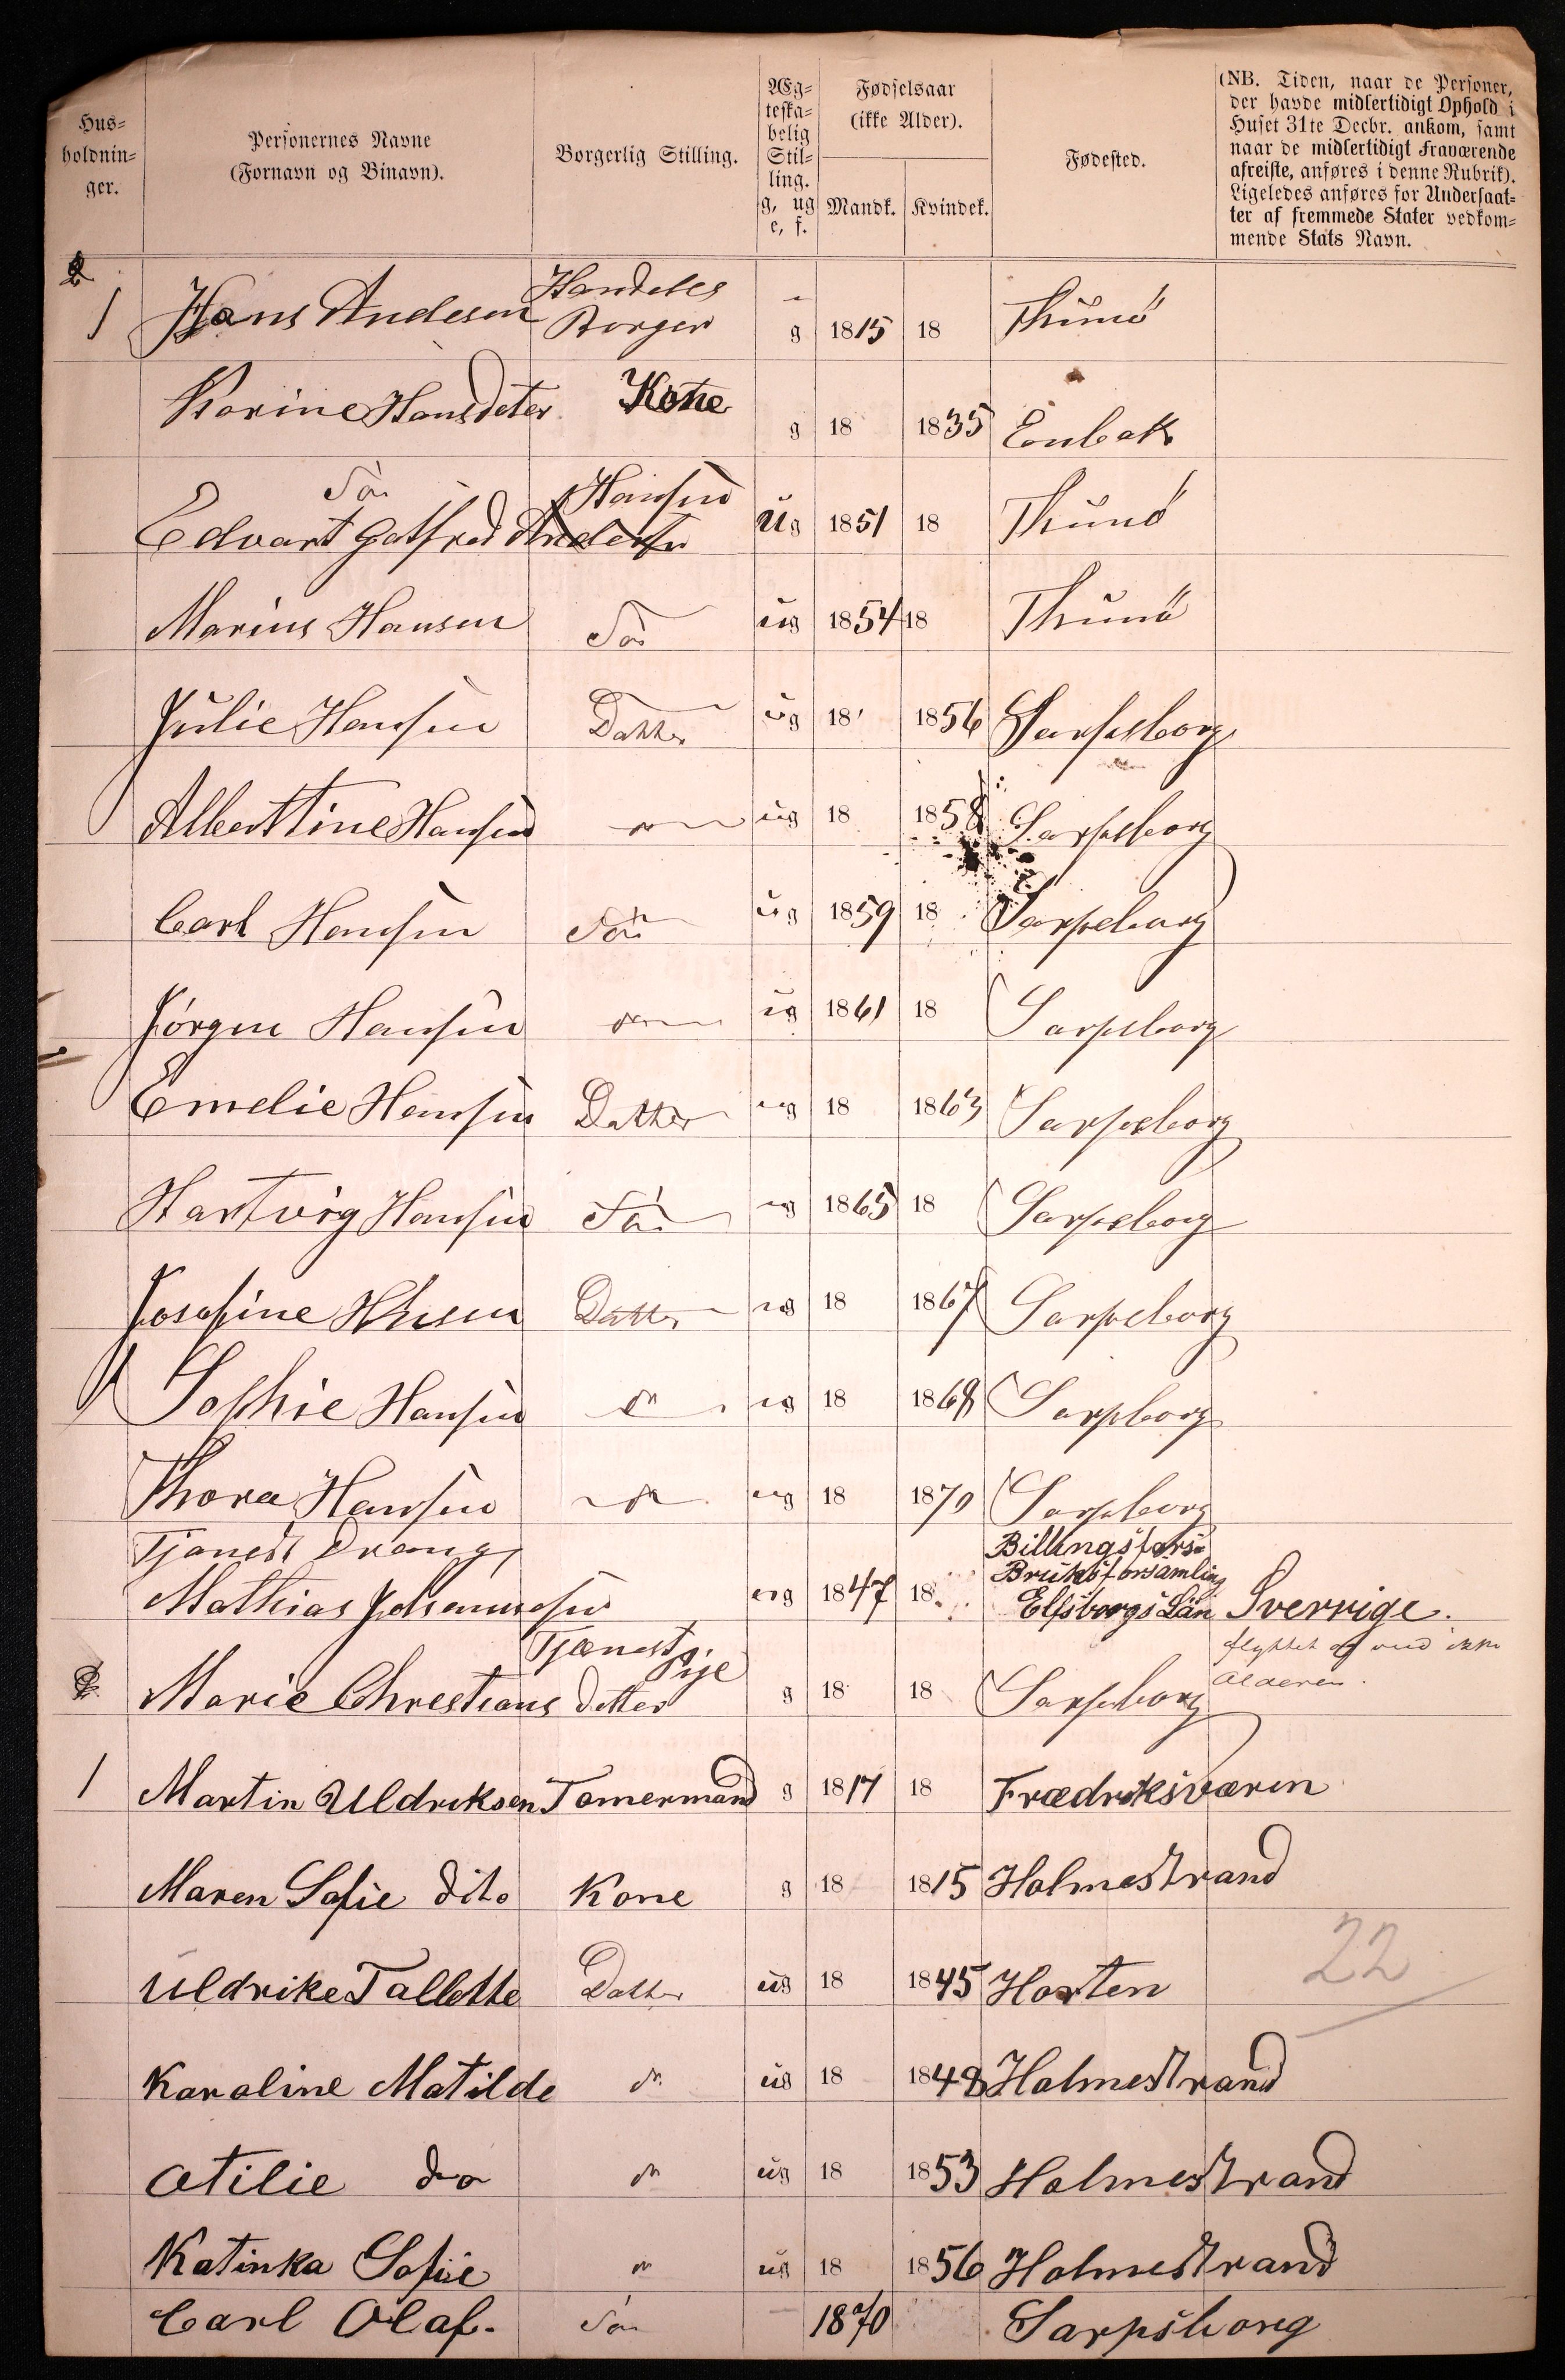 Hus-
holdnin-
ger.
Personernes Navne
(Fornavn og Binavn).
Borgerlig Stilling.
Æg-
teska-
belig
Stil-
ling.
g, ug
e, f.
Fødselsaar
(ikke Alder).
Mandk. Kvindek.
Fødested.
(NB. Tiden, naar de Personer,
der havde midlertidigt Ophold i
Huset 31te Decbr. ankom, samt
naar de midlertidigt Fraværende
afreiste, anføres i denne Rubrik).
Ligeledes anføres for Undersaat-
ter af fremmede Stater vedkom-
mende Stats Navn.
Handels
1 Hans Andesen Borger g 1815 18 Thunö
Karine Hansdeter Kone g 18 1835 Enbak
Sön Hansen
Edvart Gotfred Andersen ug 1851 18 Thunö
Marius Hansen Sön ug 1854 18 Thunö
Julie Hansen Datter ug 18 1856 Sarpsborg
Alberttine Hansen do ug 18 1858 Sarpsborg
Carl Hansen Sön ug 1859 18 Sarpsborg
Jörgen Hansen do ug 1861 18 Sarpsborg
Emelie Hansen Datter ug 18 1863 Sarpsborg
Hartvig Hansen Sön ug 1865 18 Sarpsborg
Josefine Hansen Datter ug 18 1867 Sarpsborg
Sophie Hansen do ug 18 1868 Sarpsborg
Thora Hansen do ug 18 1870 Sarpsborg
Tjanest Dræng Billingsfors
Bruksforsamling
Mathias Johannesen ug 1847 18 Elfsborgs Län Sverrige.
Tjænest Pije flyttet og ved ikke
Marie Chrestians detter g 18 18 Sarpsborg Alderen.
1 Martin Uldriksen Tomermand g 1817 18 Frædriksværin
Maren Sofie dito Kone g 18 1815 Holmestrand
Uldrike Tallette Datter ug 18 1845 Horten
22
Karoline Matilde do ug 18 1848 Holmestrand
Otilie do do ug 18 1853 Holmestrand
Katinka Sofie do ug 18 1856 Holmestrand
Carl Olaf. Sön 1870 Sarpsborg